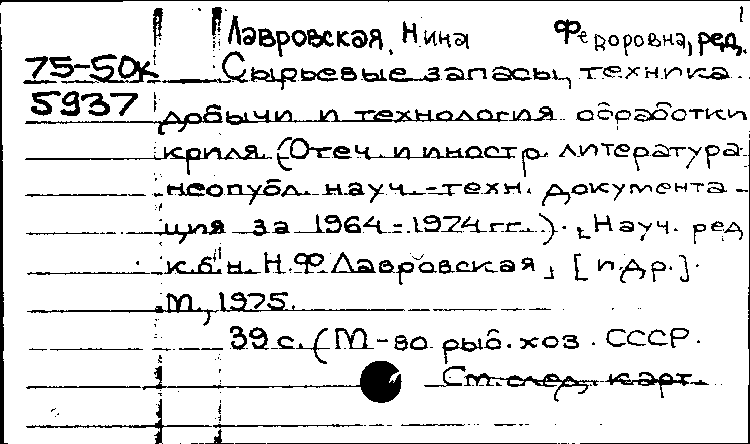 Лавровская, Нина Федоровна, ред.
75-50к Сырьевые запасы, техника
5937 добычи и технология обработки
криля. (Отеч. и иностр. литература
неопубл. науч.-техн. документа-
ция за 1964-1974 гг.). [Науч. ред
к.б.н. Н.Ф Лавровская, [и др.].
М., 1975.
39 с. (М-во рыб. хоз. СССР.
См. след. карт.